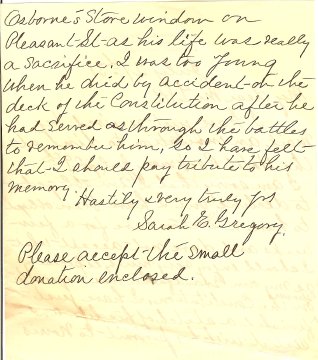 Osborne's Store window on
Pleasant St. as his life was really
a sacrifice, I was too young
when he died by accident on the
deck of the Constitution after he
had served as through the battles
to remember him, So I have felt
that I should pay tribute to his
memory.
Hastily & very truly yrs
Sarah E. Gregory.
Please accept the small
donation enclosed.